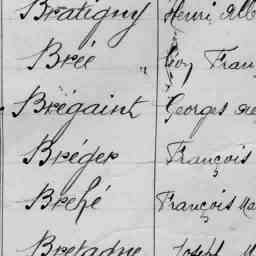 Bratigny Henri Alb
Brée " Guy Fran
Brégaint Georges
Bréger François
Brehé François Ma
Bretagne Joseph M